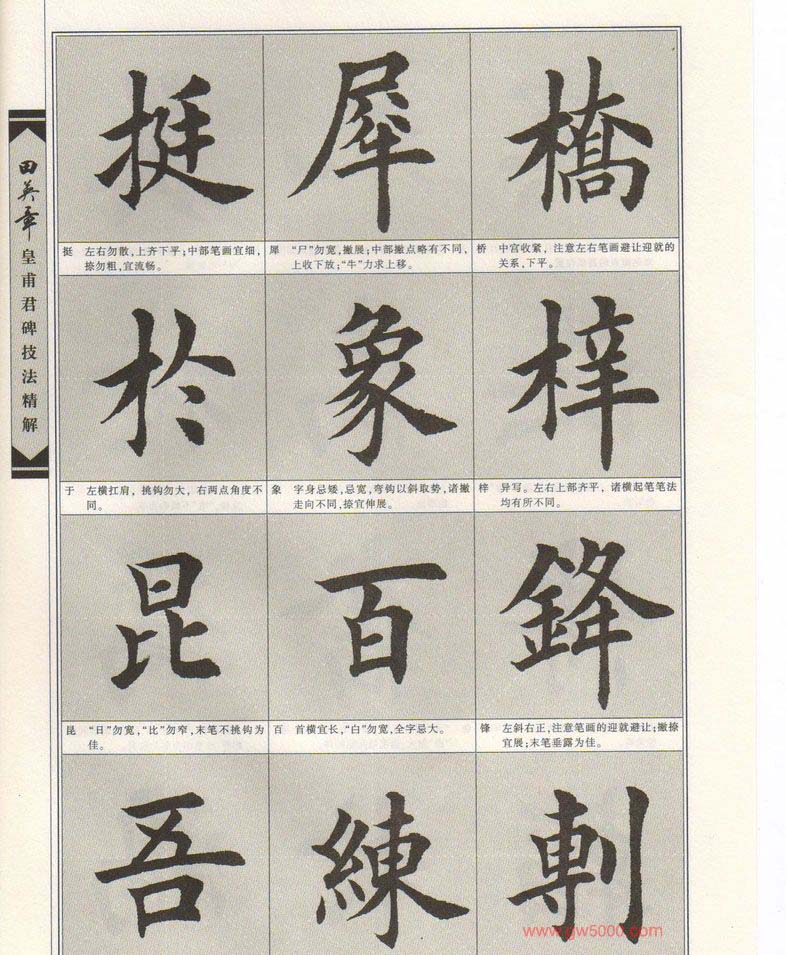 田英章
皇甫君碑技法精解
挺
犀
橋
挺 左右勿散,上齐下平;中部笔画宜细,
捺勿粗,宜流畅。
犀 “尸”勿宽,撇展;中部撇点略有不同,
上收下放;“牛”力求上移。
桥 中宫收紧,注意左右笔画避让迎就的
关系,下平。
於
象
梓
于 左横扛肩,挑钩勿大,右两点角度不
同。
象 字身忌矮,忌宽,弯钩以斜取势,诸撇
走向不同,捺宜伸展。
梓 异写。左右上部齐平,诸横起笔笔法
均有所不同。
昆
百
鋒
昆 “日”勿宽,“比”勿窄,末笔不挑钩为
佳。
百 首横宜长,“白”勿宽,全字忌大。
锋 左斜右正,注意笔画的迎就避让;撇捺
宜展;末笔垂露为佳。
吾
練
剸
www.gw5000.com